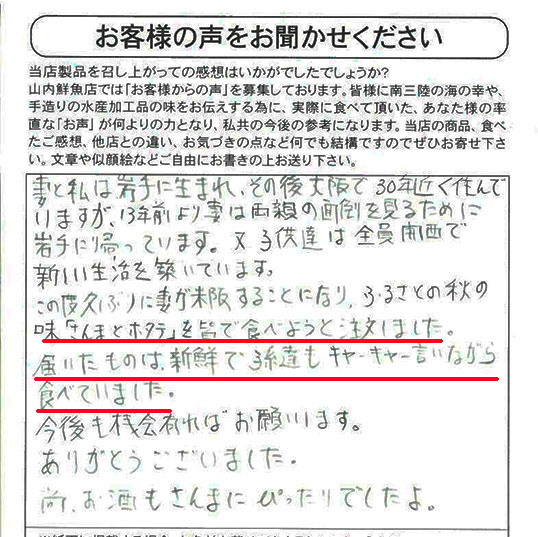 お客様の声をお聞かせください
当店製品を召し上がっての感想はいかがでしたでしょうか?
山内鮮魚店では「お客様からの声」を募集しております。皆様に南三陸の海の幸や、
手造りの水産加工品の味をお伝えする為に、実際に食べて頂いた、あなた様の率
直な「お声」が何よりの力となり、私共の今後の参考になります。当店の商品、食べ
たご感想、他店との違い、お気づきの点など何でも結構ですのでぜひお寄せ下さ
い。文章や似顔絵などご自由にお書きの上お送り下さい。
妻と私は岩手に生まれ、その後大阪で30年近く住んで
いますが、13年前より妻は両親の面倒を見るために
岩手に帰っています。又子供達は全員関西で
新しい生活を築いています。
この度久しぶりに妻が来阪することになり、ふるさとの秋の
味「さんまとホタテ」を皆で食べようと注文しました。
届いたものは、新鮮で孫達もキャーキャー言いながら
食べていました。
今後も機会有ればお願いします。
ありがとうございました。
尚、お酒もさんまにぴったりでしたよ。